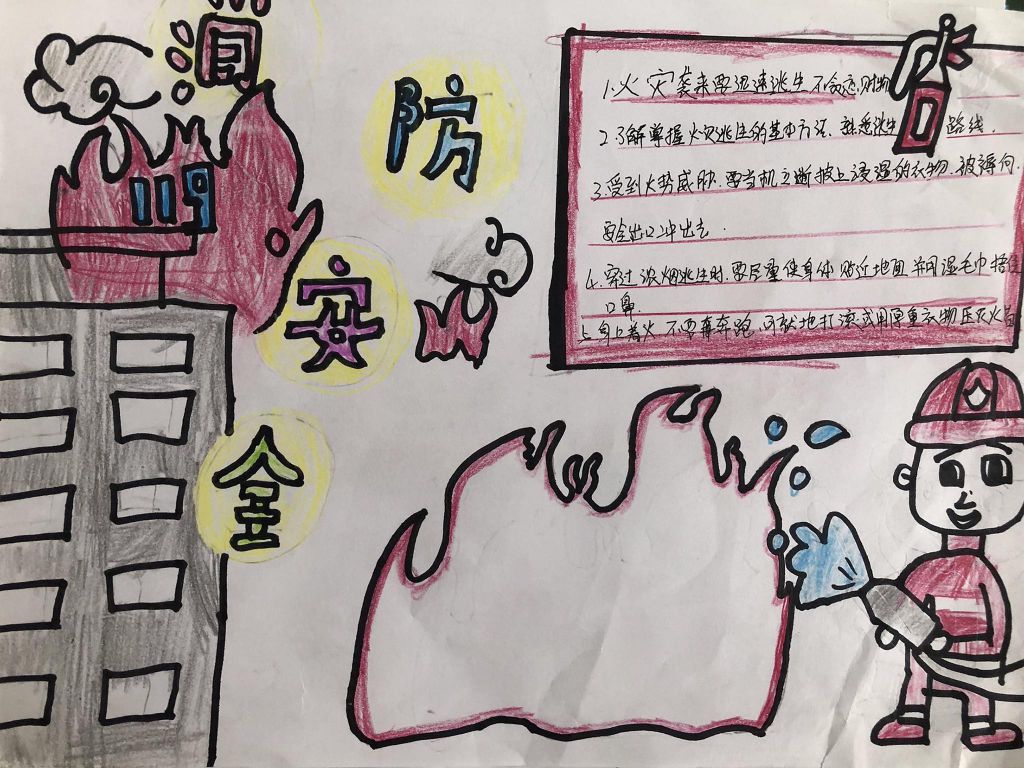 消
防
安
全
119
1.火灾袭来要迅速逃生不贪恋财物
2.了解掌握火灾逃生的基本方法,熟悉逃生路线.
3.受到火势威胁.要当机立断披上浸湿的衣物.被褥向.
安全出口冲出去.
4.穿过浓烟逃生时.要尽量使身体贴近地面并用湿毛巾捂住
口鼻
5.身上着火不要奔跑.可就地打滚或用厚重衣物压灭火苗